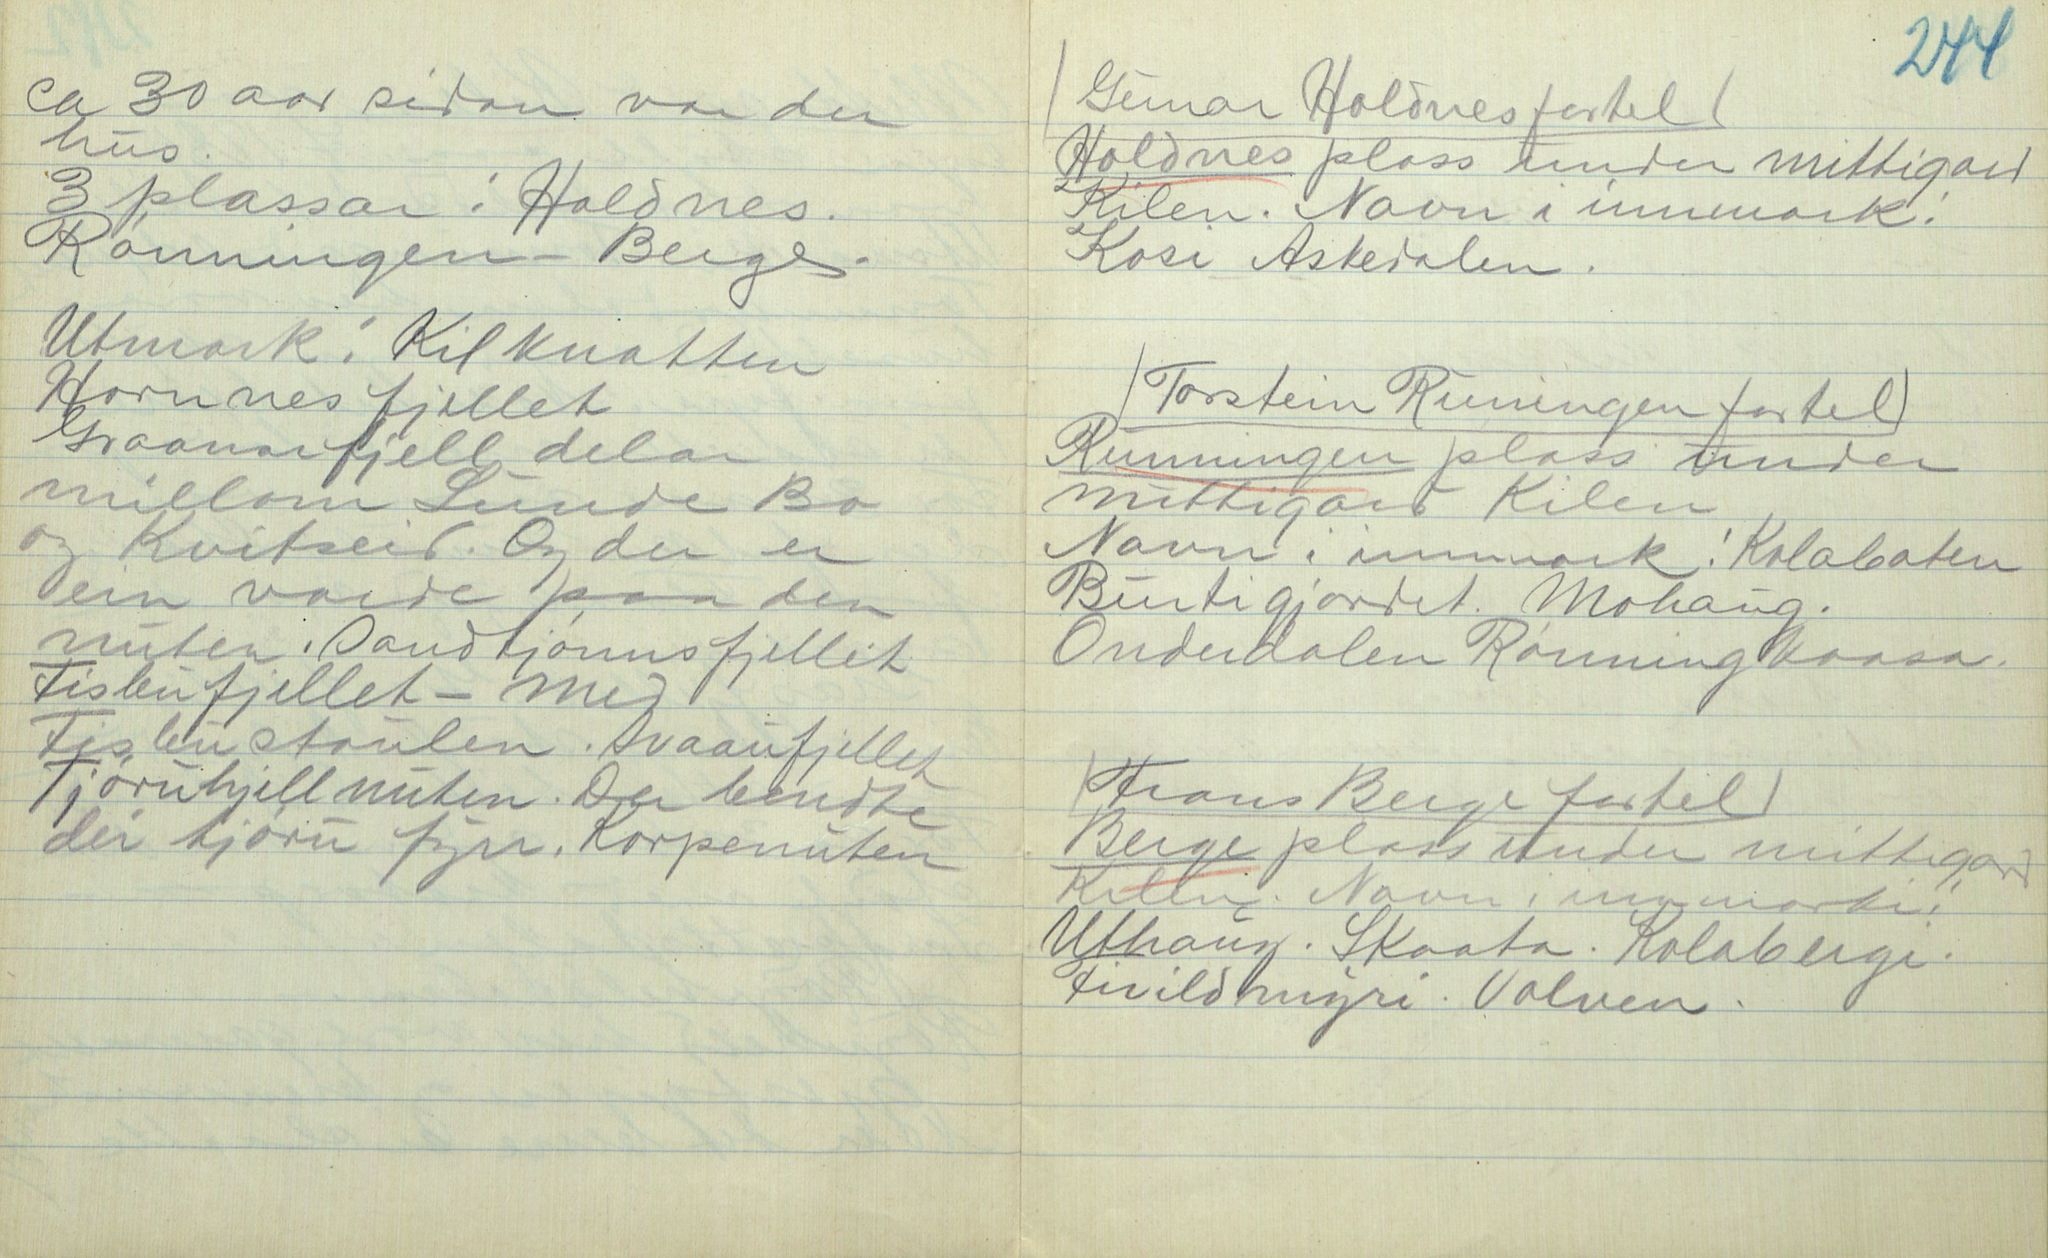 ca 30 aar sidan var der
hus.
3 plassar: Holdnes.
Rönningen – Berge.
Utmark: Kilknatten
Hornnesfjellet
Graanarfjell delar
millom Lunde Bø
og Kvitseid. Og der er
ein varde paa den
nuten. Sandtjønnsfjellet
Fisbufjellet – med
Fisbustaulen. Svaaufjellet
Tjøruhjellnuten. Der brendte
dei tjøru fyrr. Korpenuten
244
Gunar Holdnes fortel
Holdnes plass under mittigard
Kilen. Navn i innmark:
Kosi Askedalen.
Torstein Runingen fortel
Runningen plass under
mittigard Kilen
Navn i innmark: Kolabaten
Burtigjordet. Mohaug.
Onderdalen Rönningkaasa.
Frans Berge fortel
Berge plass under mittigard
Kilen. Navn i innmarki:
Uthaug. Skaata. Kolabergi.
Fivildmyri. Volven.